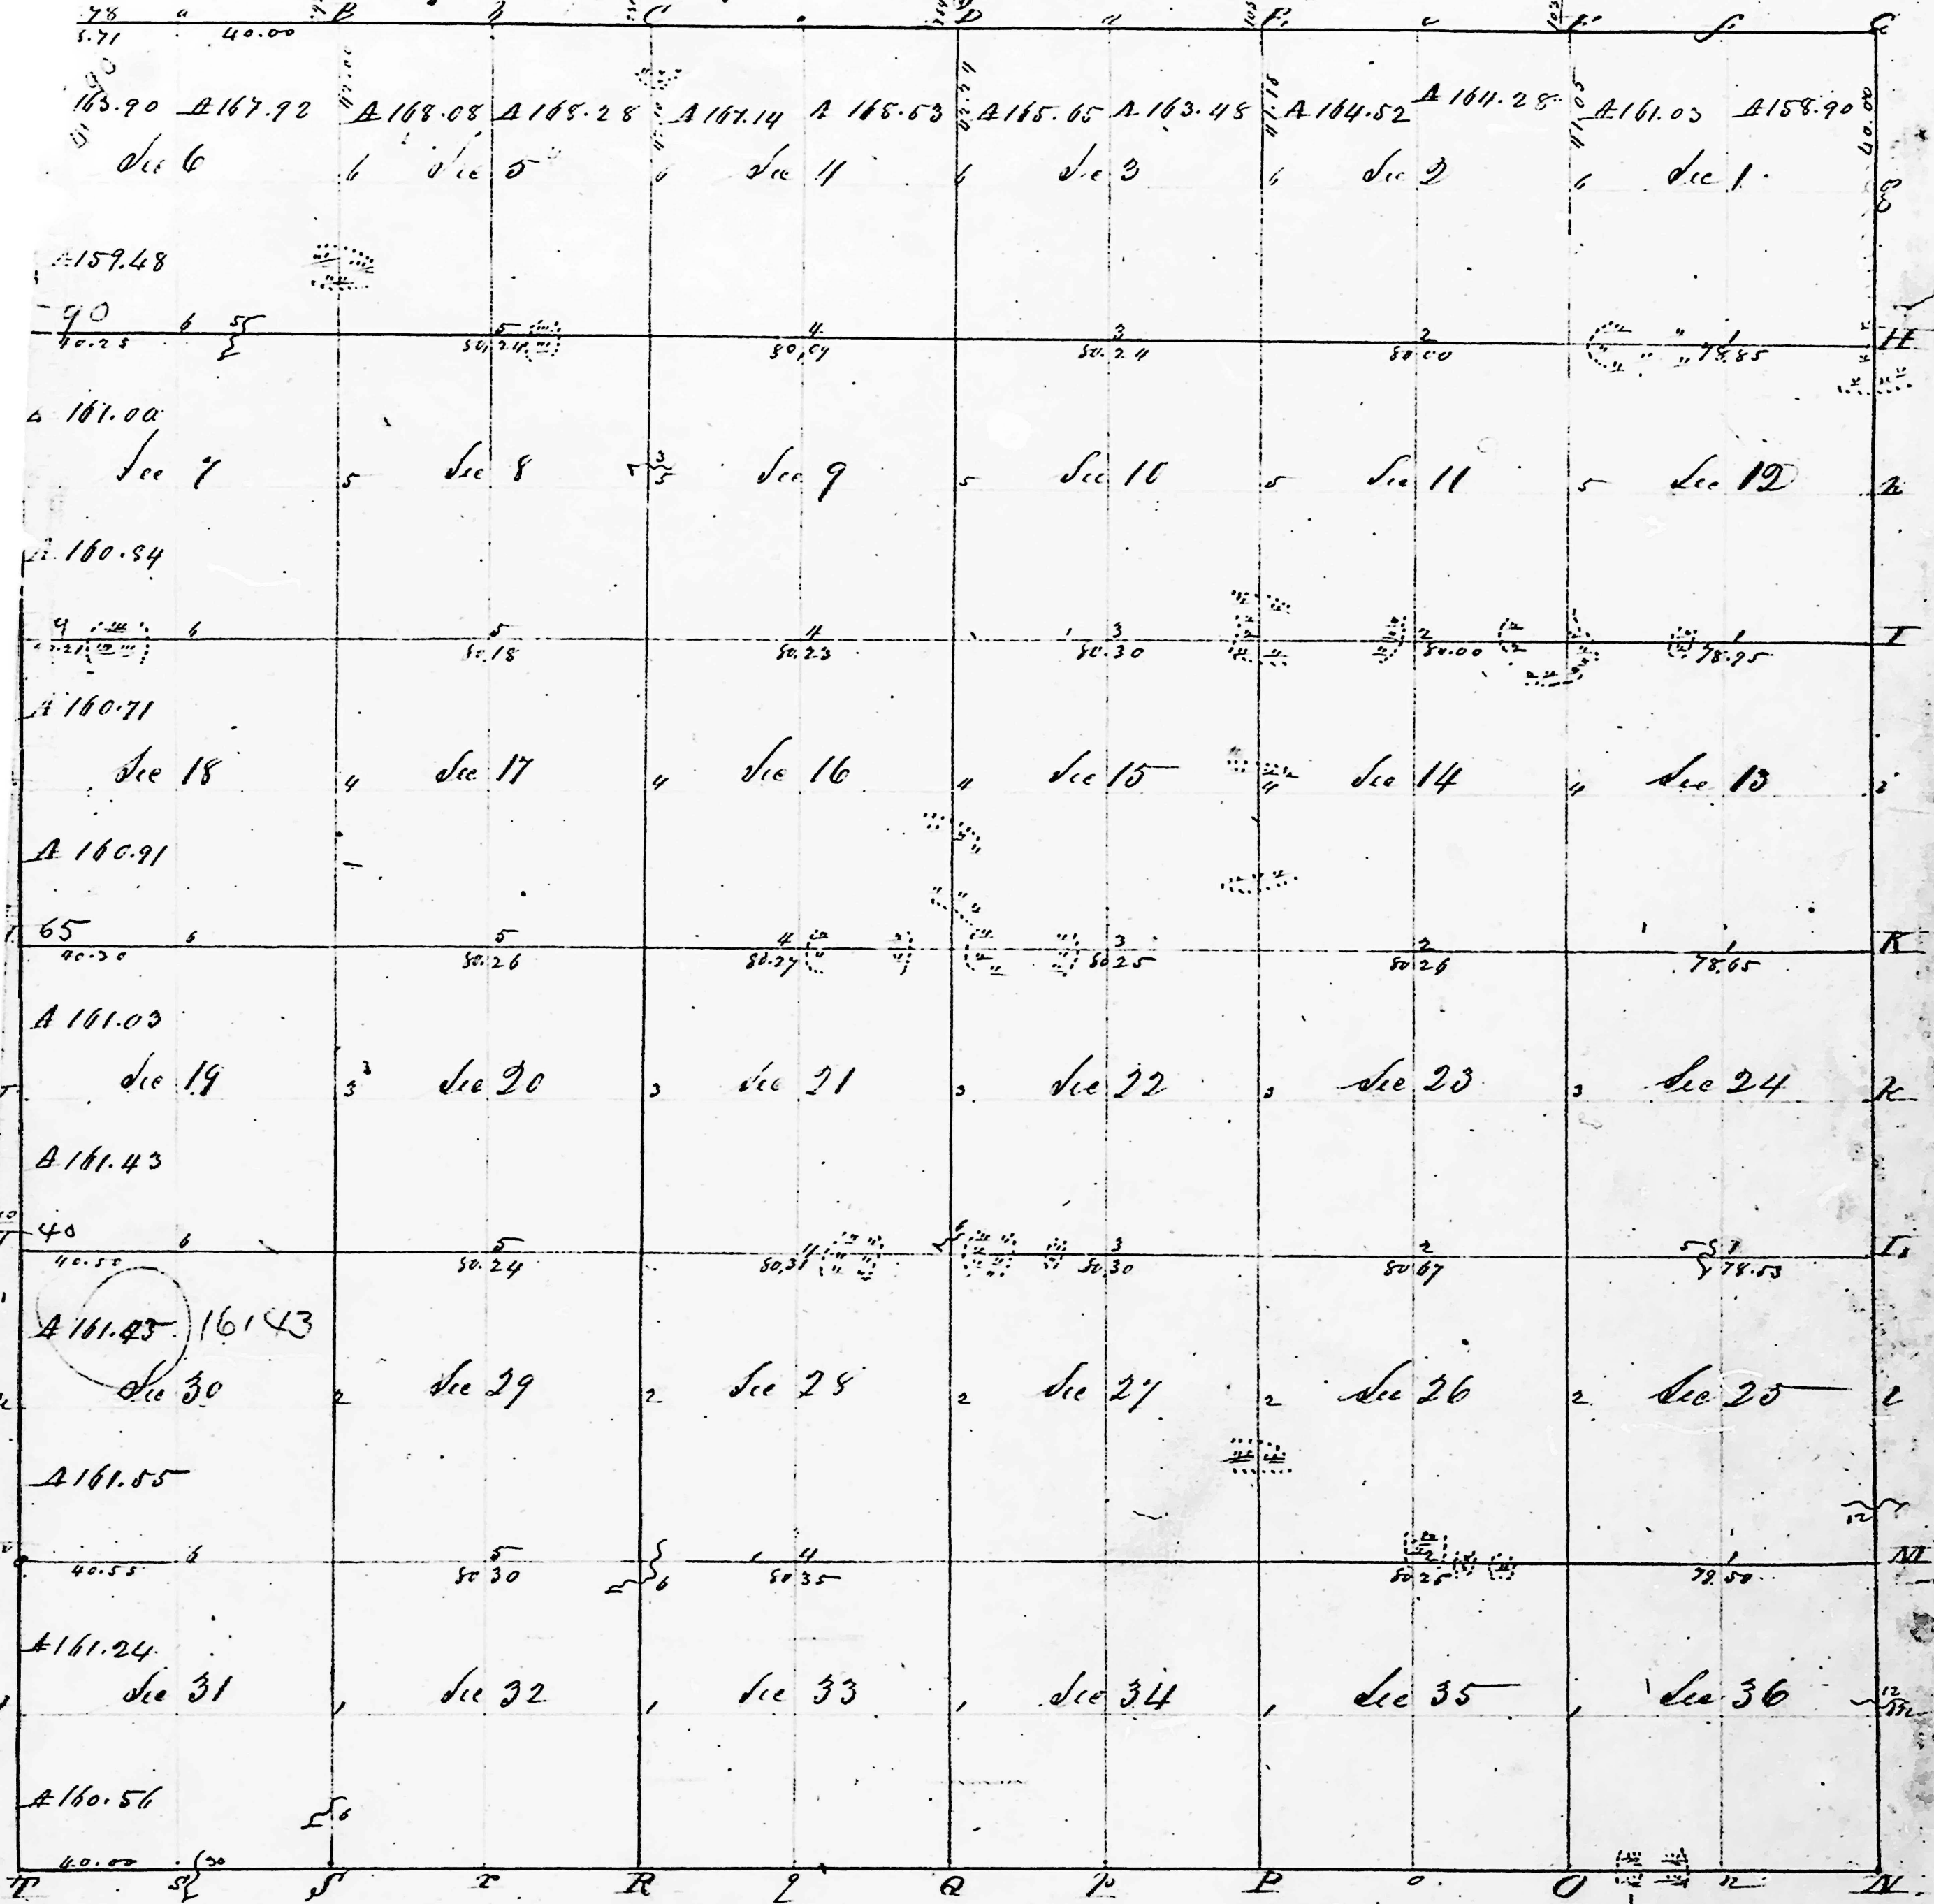 .78 a B b C D E F f G
5.71 40.00
163.90 A 167.92 A 168.08 A 168.28 A 167.14 A 168.53 A 165.65 A 163.48 A 164.52 A 164.28 A 161.03 A 158.90 40.00
Sec 6 6 Sec 5 6 Sec 4 6 Sec 3 6 Sec 2 6 Sec 1
A 159.48
90 6 55 5 4 3 2 1 H
40.25 80.24 80.09 80.24 80.00 78.85
A 161.00
Sec 7 5 Sec 8 5 Sec 9 5 Sec 10 5 Sec 11 5 Sec 12 h
A 160.84
6 5 4 3 2 1 I
80.18 80.23 80.30 80.00 78.95
A 160.71
Sec 18 4 Sec 17 4 Sec 16 4 Sec 15 4 Sec 14 4 Sec 13 i
A 160.91
65 6 5 4 3 2 1 K
40.30 80.26 80.27 80.25 80.26 78.65
A 161.03
Sec 19 3 Sec 20 3 Sec 21 3 Sec 22 3 Sec 23 3 Sec 24 k
A 161.43
40 6 5 4 6 3 2 5 1 L
40.50 80.24 80.31 80.30 80.67 78.53
A 161.45 16143
Sec 30 2 Sec 29 2 Sec 28 2 Sec 27 2 Sec 26 2 Sec 25 l
A 161.55
12
6 5 4 2 1 M
40.55 80.30 6 80.35 80.25 79.50
A 161.24
Sec 31 1 Sec 32 1 Sec 33 1 Sec 34 1 Sec 35 1 Sec 36 12
A 160.56
6
40.00 30
T s S r R q Q p P o O n N